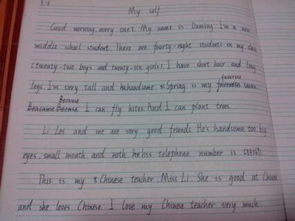 My self
Good morning, every one! My name is Daming. I'm a new
middle school student. There are fourty-eight students in my class
(twenty-two boys and twenty-six girls). I have short hair and long
legs. I'm very tall and handsome. Spring is my favourite
Because I can fly kites. And I can plant trees.
Li Lei and me are very good friends. He's handsome too big
eyes, small mouth and his telephone number is
This is my Chinese teacher, Miss Li. She is good at Chinese
and she loves Chinese. I love my Chinese teacher very much.